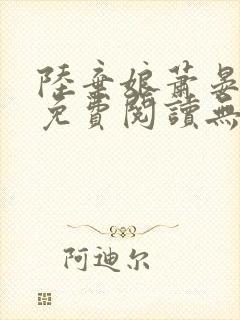 陸棄娘蕭晏
免費閱讀無
阿迪尔